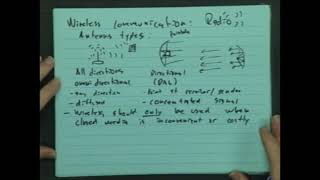 Wireless communication: Radio
Antenna types. parabola
All directions Directional
omni directional (DAL)
- any direction - Point at receiver/sender
- diffused - concentrated signal
- Wireless should only be used when
closed media is inconvenient or costly